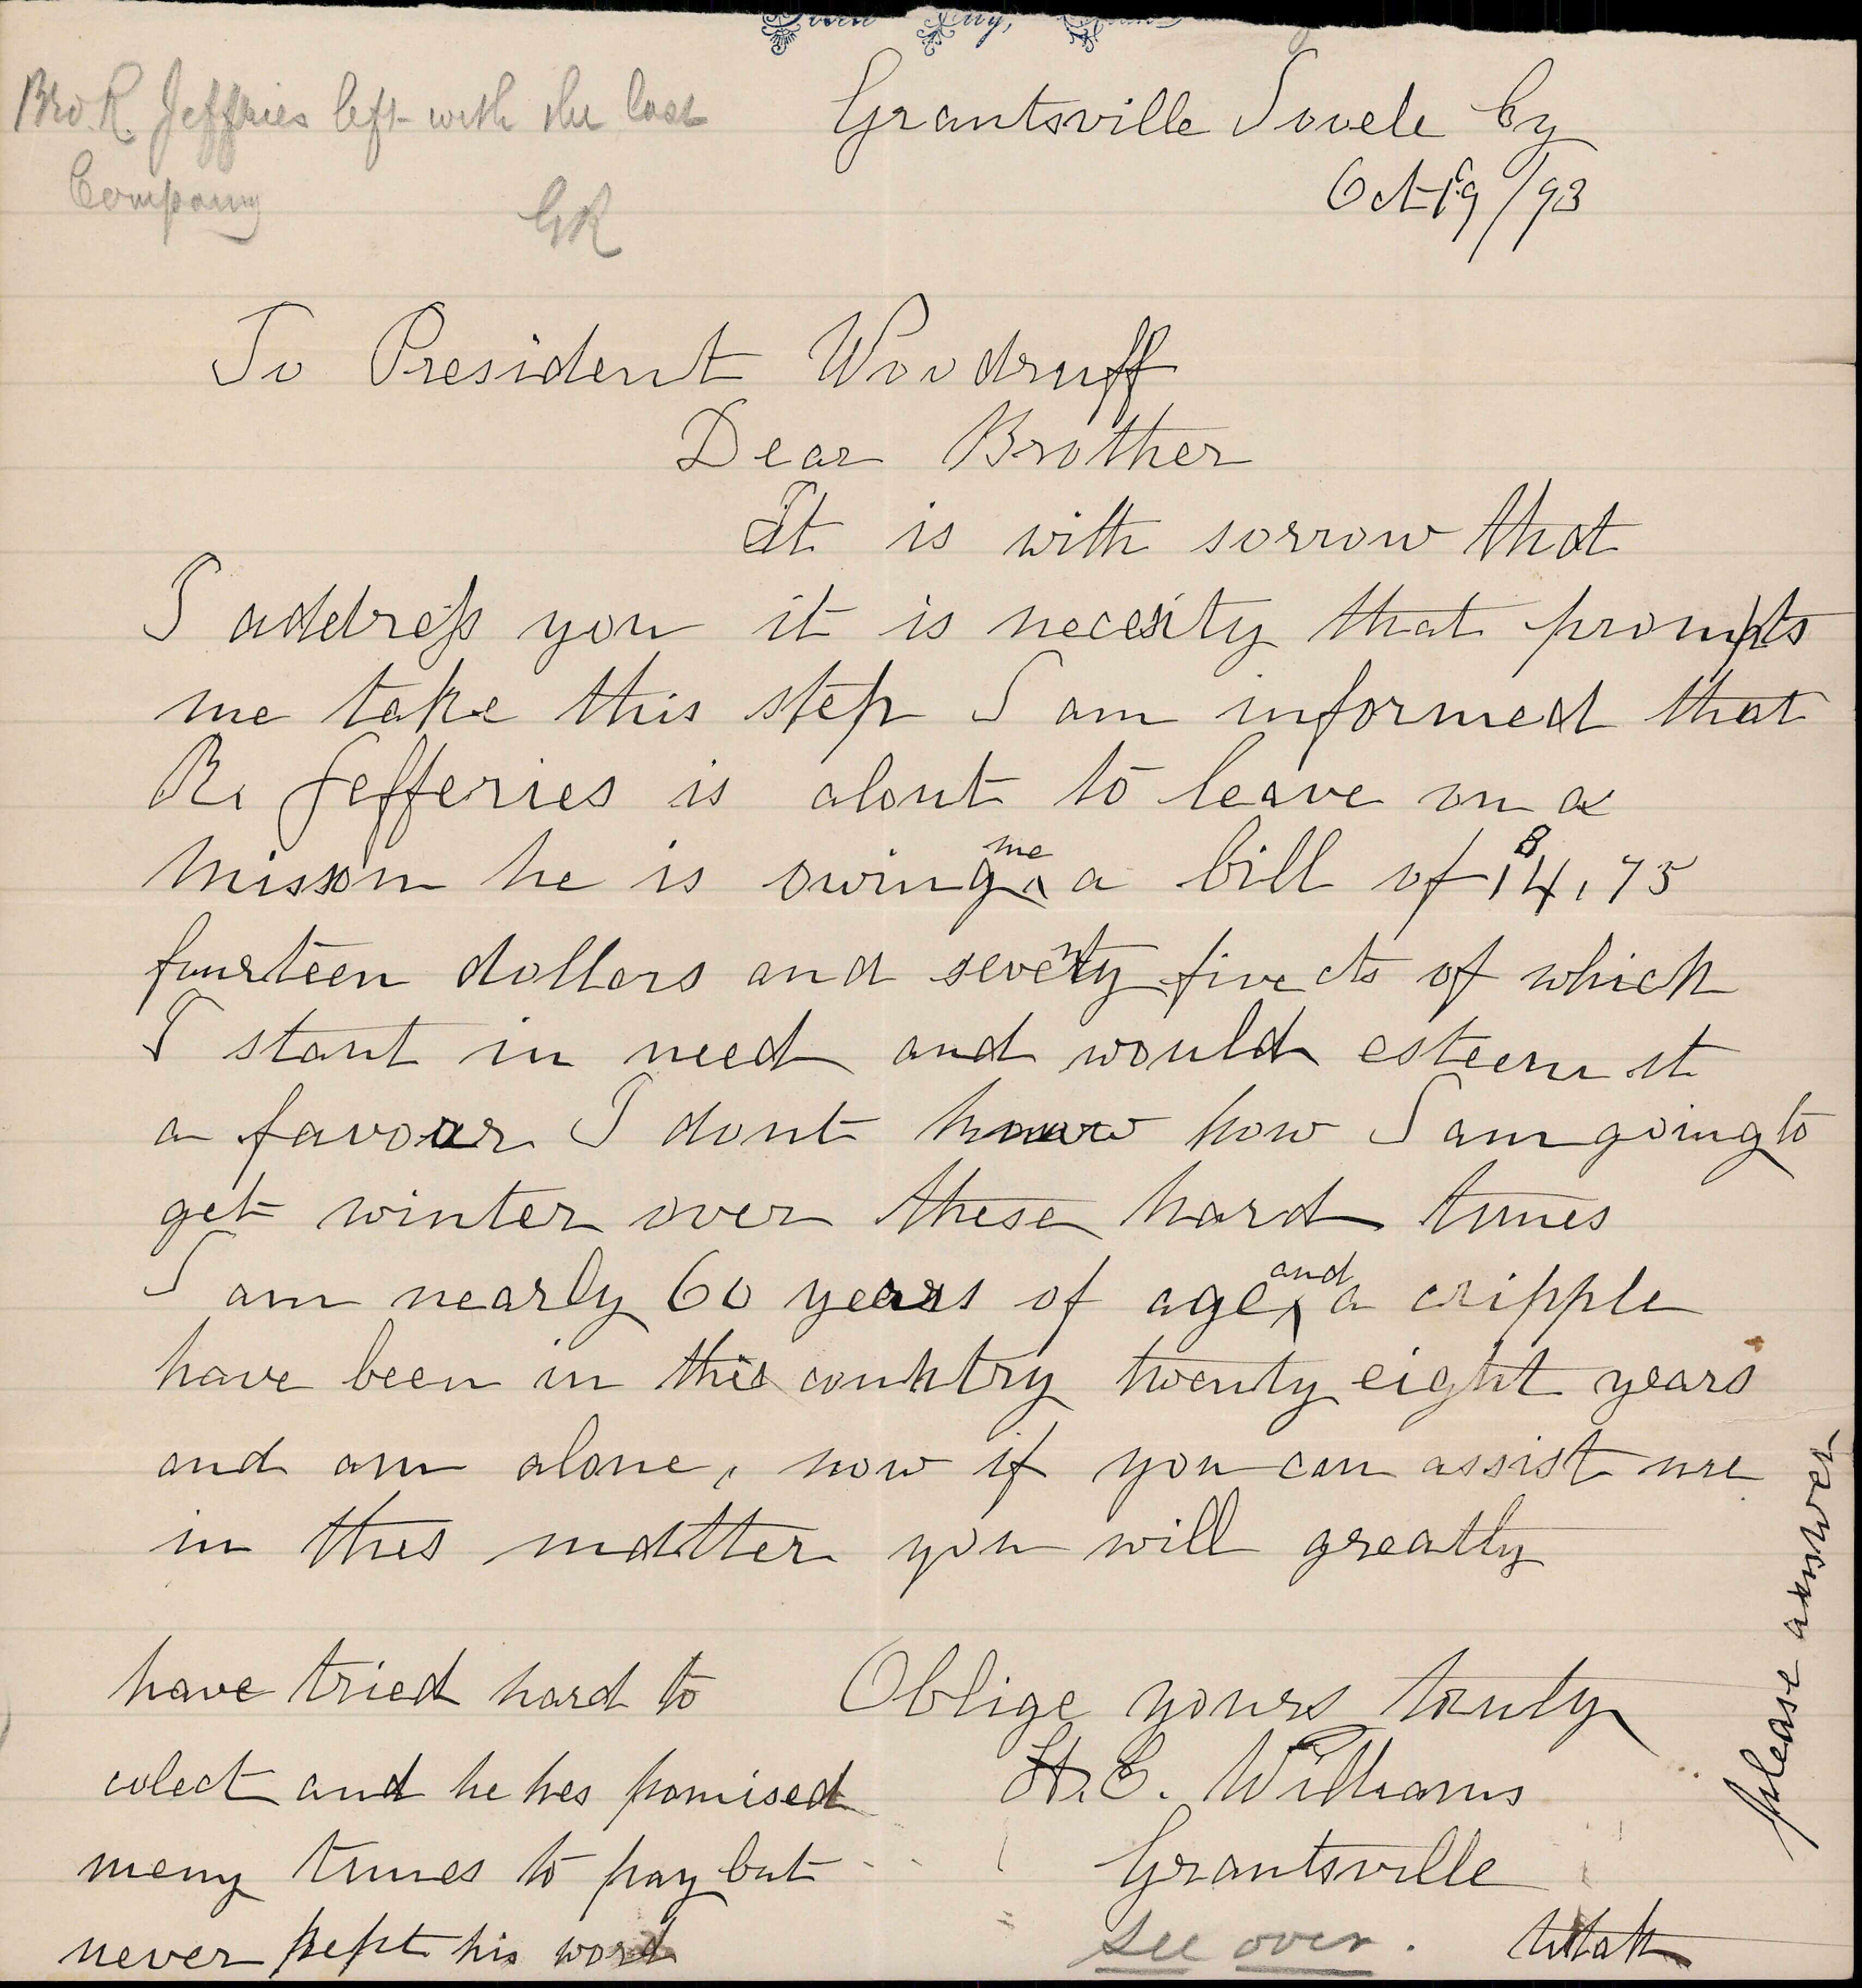 Bro. R. Jeffries left with the last
Company
GR
Grantsville Tooele Cy
Oct 19/93
To President Woodruff
Dear Brother
It is with sorrow that
I address you it is necesity that prompts
me take this step I am informed that
R. Jefferies is about to leave on a
misson he is owing me a bill of $14.75
fourteen dollars and seventy five cts of which
I stant in need and would esteem it
a favour I dont know how I am going to
get winter over these hard times
I am nearly 60 years of age and a cripple
have been in this country twenty eight years
and am alone, now if you can assist me
in this matter you will greatly
Oblige yours truly
H. C. Williams
Grantsville
Utah
have tried hard to
colect and he hes promised
meny times to pay but
never kept his word
see over.
please answer